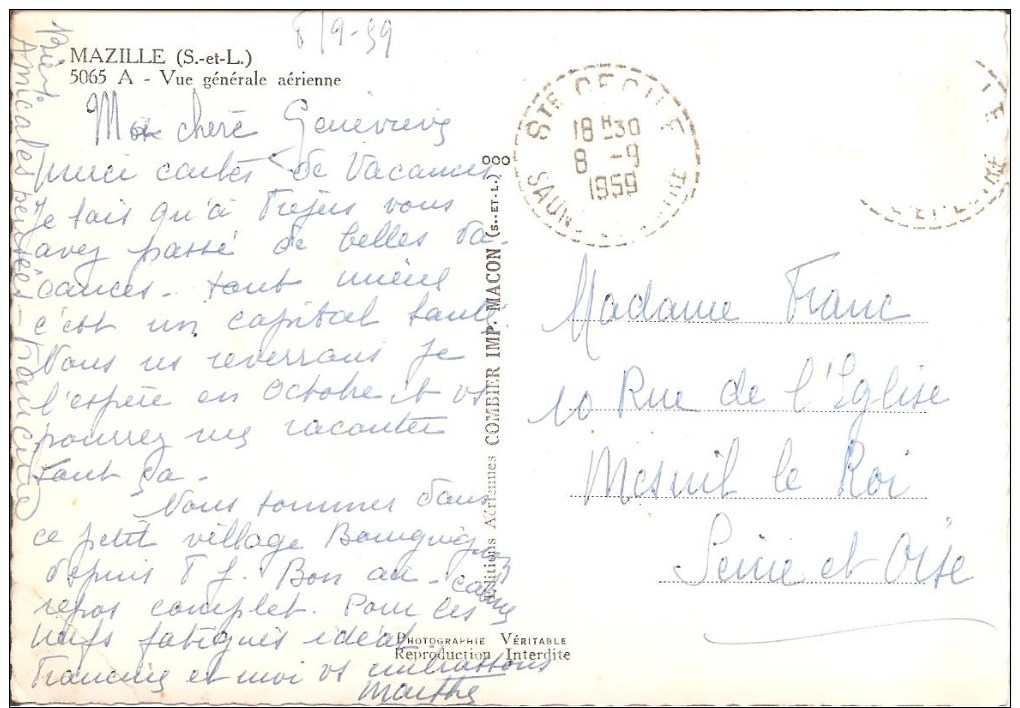 8/9-59
MAZILLE (S.-et-L.)
5065 A - Vue générale aérienne
Ma chère Geneviève
merci cartes de Vacances
Je sais qu'à Fréjus vous
avez passé de belles va-
cances - tant mieux
c'est un capital santé
Nous ns reverrons je
l'espère en Octobre et vs
pourrez me raconter
tout ça -
Nous sommes dans
ce petit village Bourguignon
depuis 8 j. Bon air - calme
repos complet. Pour les
nerfs fatigués idéal
Francine et moi vs embrassons
Marthe
Bien
Amicales pensées - Francine
ooo
Editions Aériennes COMBIER IMP. MACON (S.-ET-L.)
PHOTOGRAPHIE VÉRITABLE
Reproduction Interdite
STE CECILE
18H-30
8 -9
1959
Madame Franc
10 Rue de l'Eglise
Mesnil le Roi
Seine et Oise